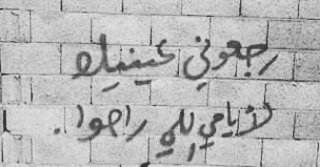 رجعوني عينيك
لأيامي اللي راحوا.